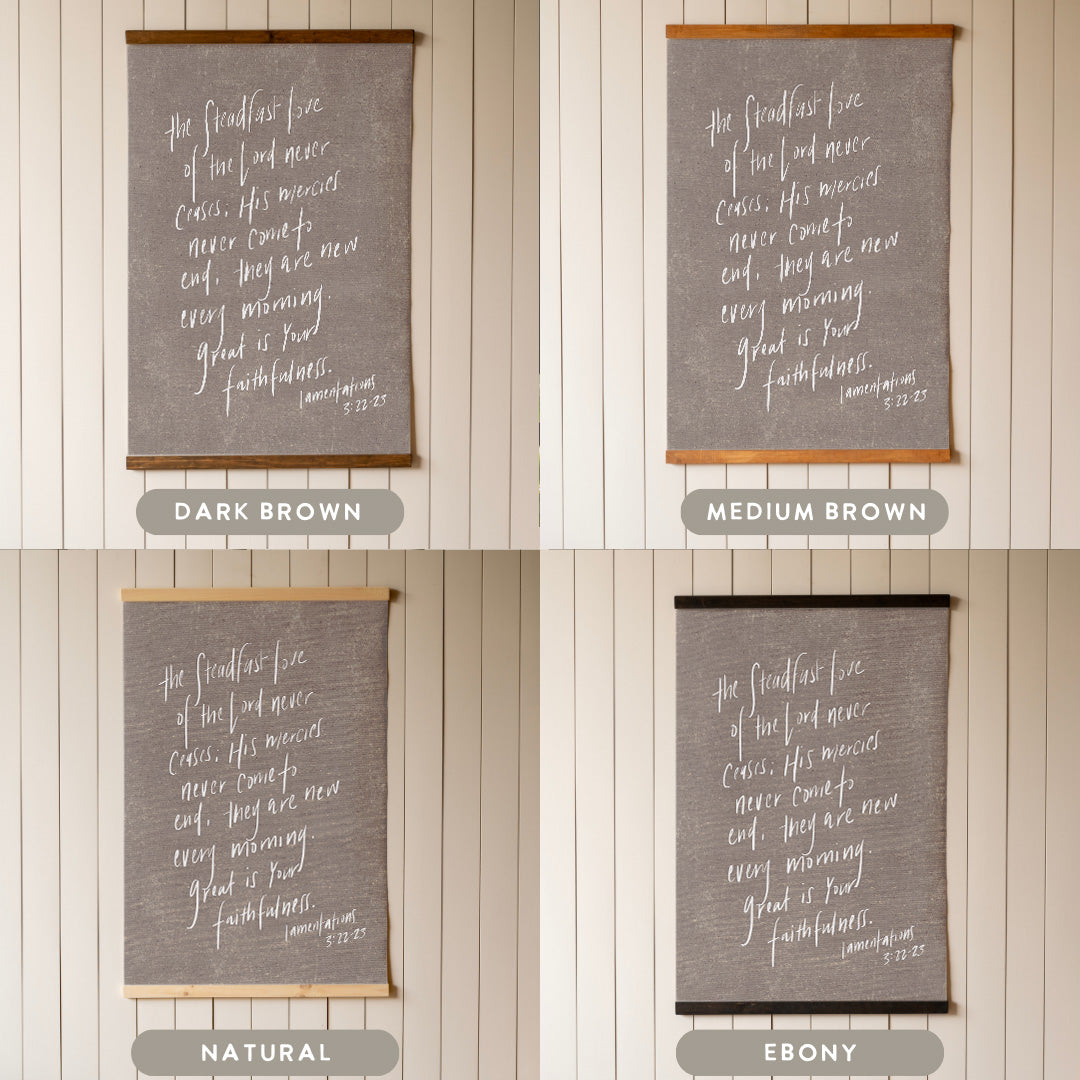 the steadfast love
of the Lord never
ceases; His mercies
never come to
end. they are new
every morning.
great is Your
faithfulness.
lamentations
3:22-23
DARK BROWN
the steadfast love
of the Lord never
ceases; His mercies
never come to
end. they are new
every morning.
great is Your
faithfulness.
lamentations
3:22-23
MEDIUM BROWN
the steadfast love
of the Lord never
ceases; His mercies
never come to
end. they are new
every morning.
great is Your
faithfulness.
lamentations
3:22-23
NATURAL
the steadfast love
of the Lord never
ceases; His mercies
never come to
end. they are new
every morning.
great is Your
faithfulness.
lamentations
3:22-23
EBONY